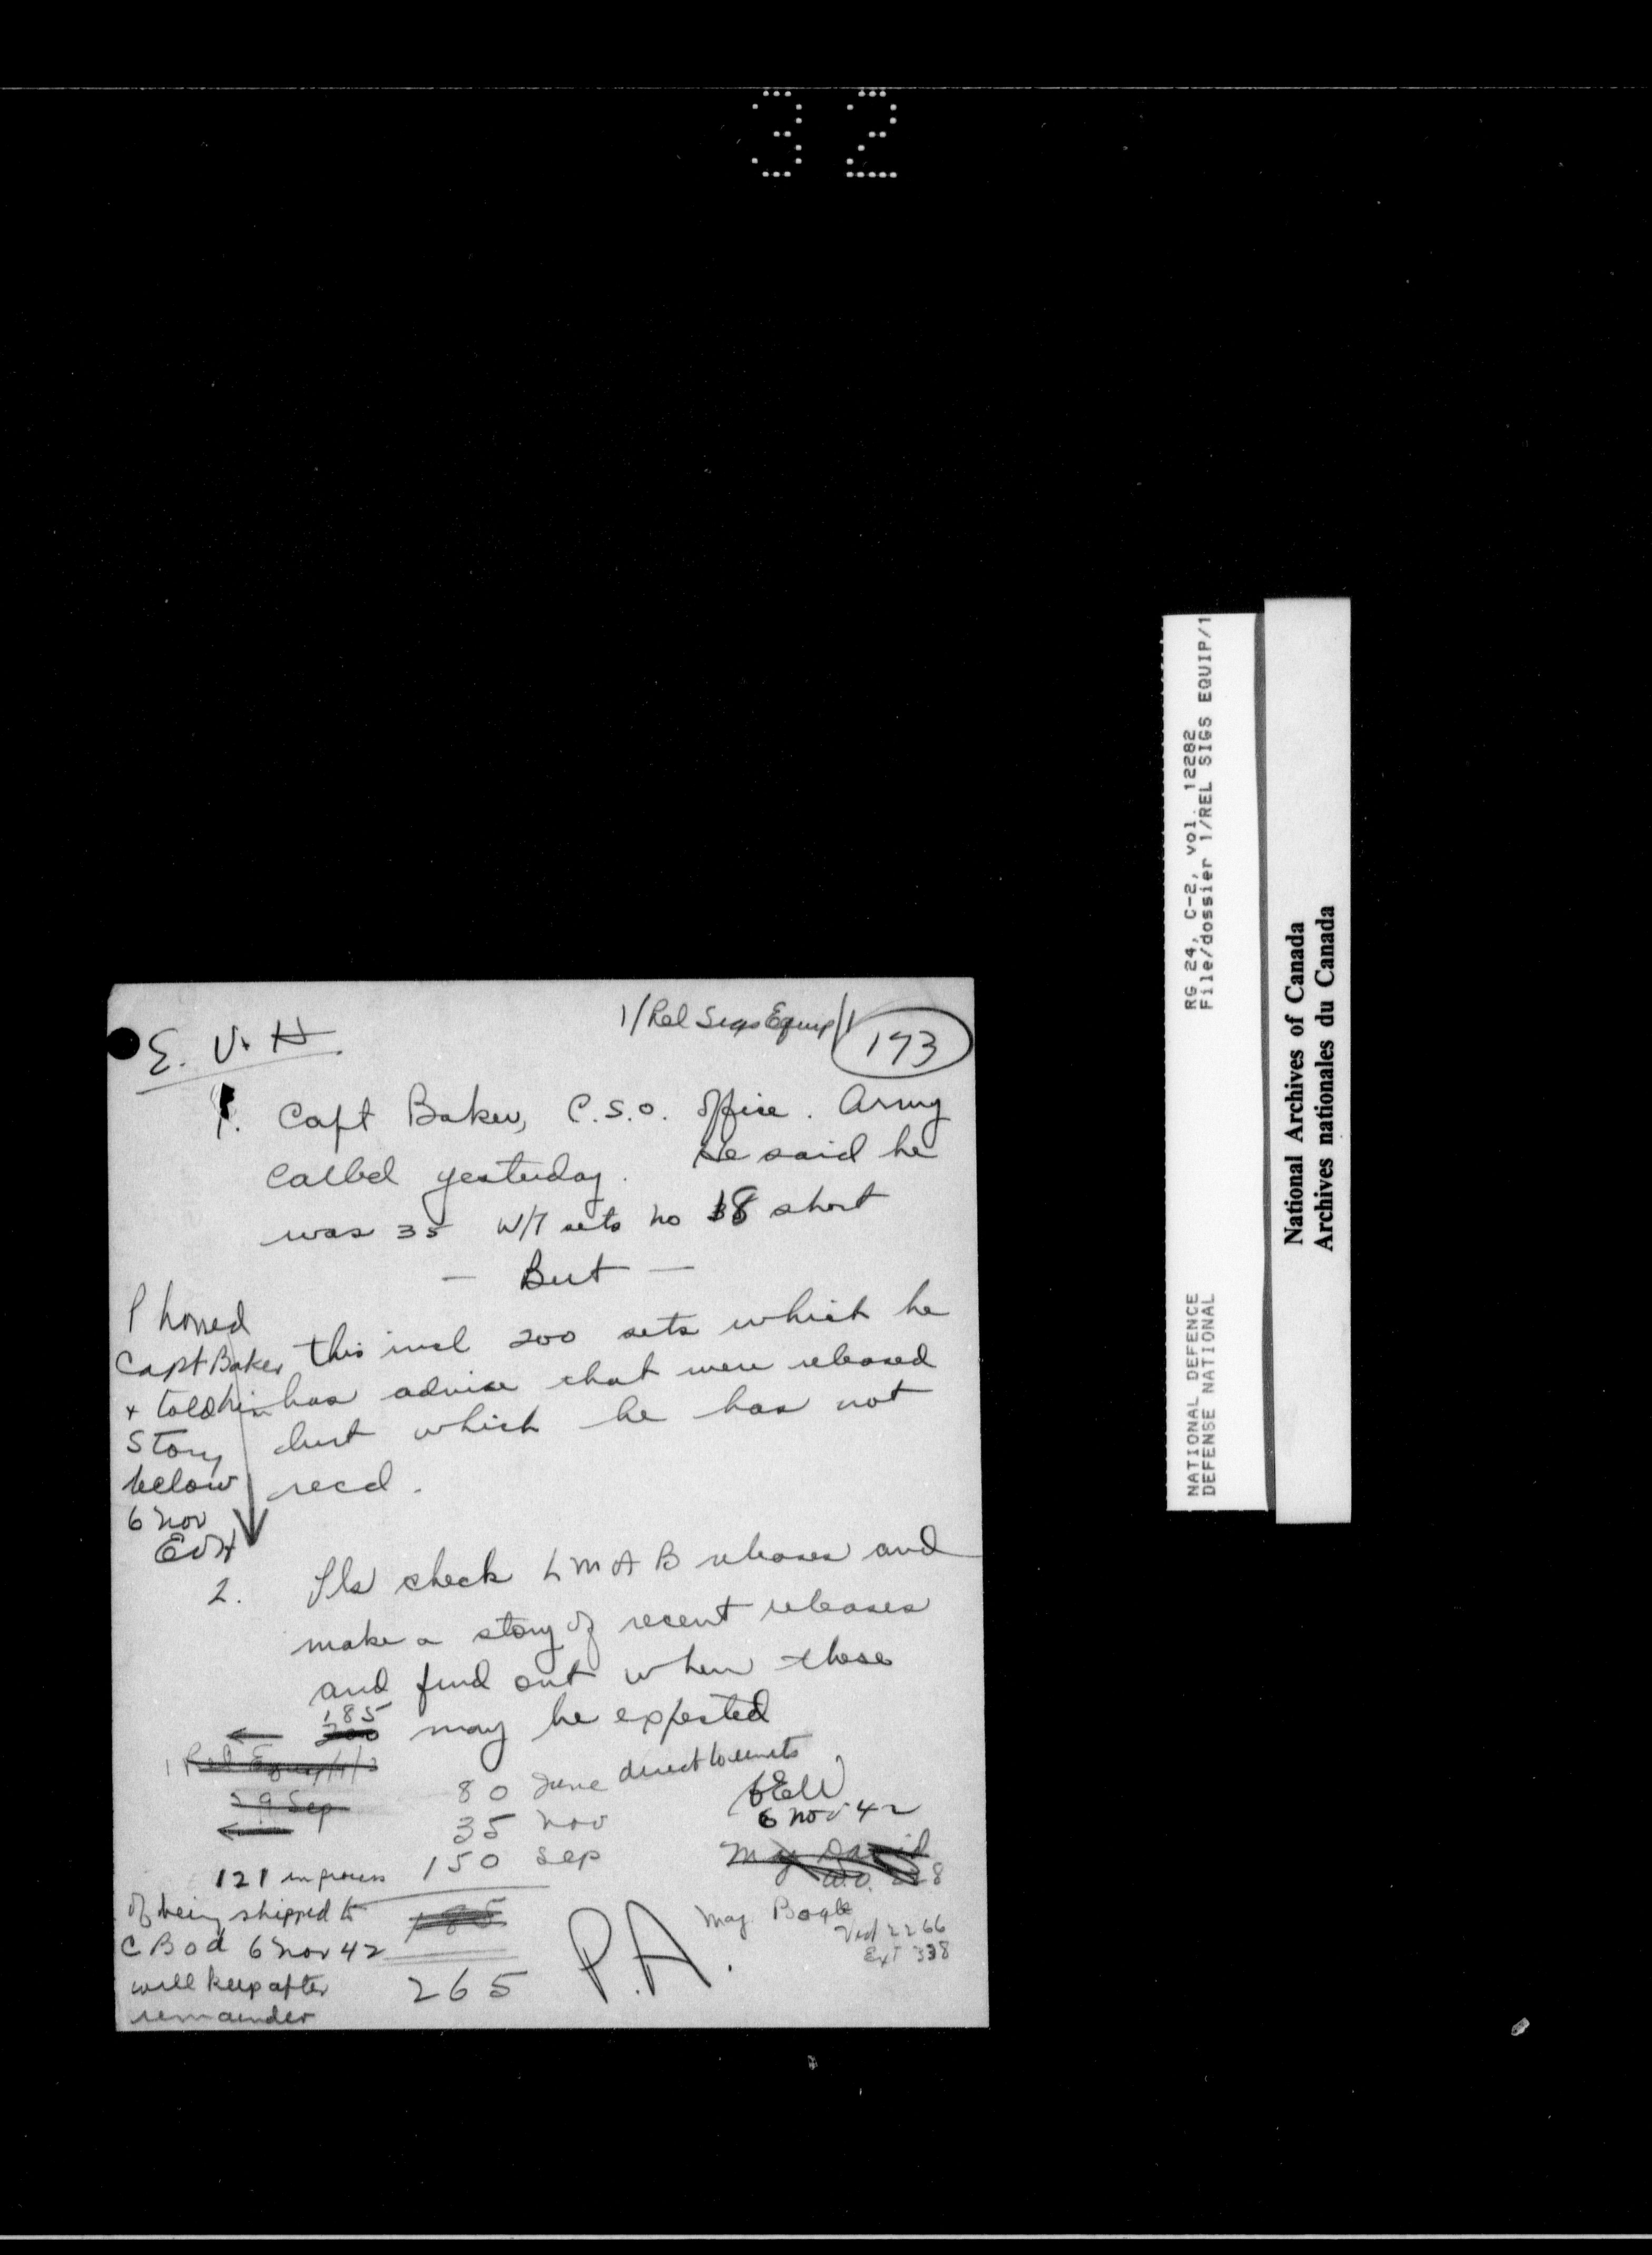 32
1/Rel Sigs Equip/1
173
E. V. H
1. Capt Baker, C.S.O. office. Army
called yesterday. He said he
was 35 W/T sets no 18 short
— But —
this incl 200 sets which he
has advise that were released
but which he has not
recd.
Phoned
Capt Baker
+ told him
Story
below
6 Nov
EVH
2. Pls check LMAB releases and
make a story of recent releases
and find out when these
185
200 may be expected
1 Rel Equip/1/2
29 Sep
80 June direct to units
35 Nov
150 Sep
185
265
6 Nov 42
121 in process
of being shipped to
CBOD 6 Nov 42
will keep after
remainder
P.A.
Maj David
Maj Bogle
Vict 2266
Ext 338
RG 24, C-2, vol. 12282
File/dossier 1/REL SIGS EQUIP/1
NATIONAL DEFENCE
DEFENSE NATIONAL
National Archives of Canada
Archives nationales du Canada